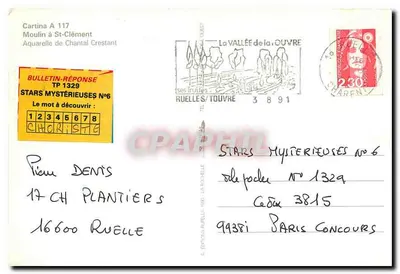 Cartina A 117
Moulin à St-Clément
Aquarelle de Chantal Crestant
BULLETIN-RÉPONSE
TP 1329
STARS MYSTÉRIEUSES N°6
Le mot à découvrir :
1 2 3 4 5 6 7 8
CHORISTE
Pierre DENIS
17 CH PLANTIERS
16600 RUELLE
La VALLÉE de la TOUVRE
RUELLES/TOUVRE
3 8 91
2,30
STARS MYSTERIEUSES N°6
N° 1329
Cedex 3815
99381 PARIS CONCOURS